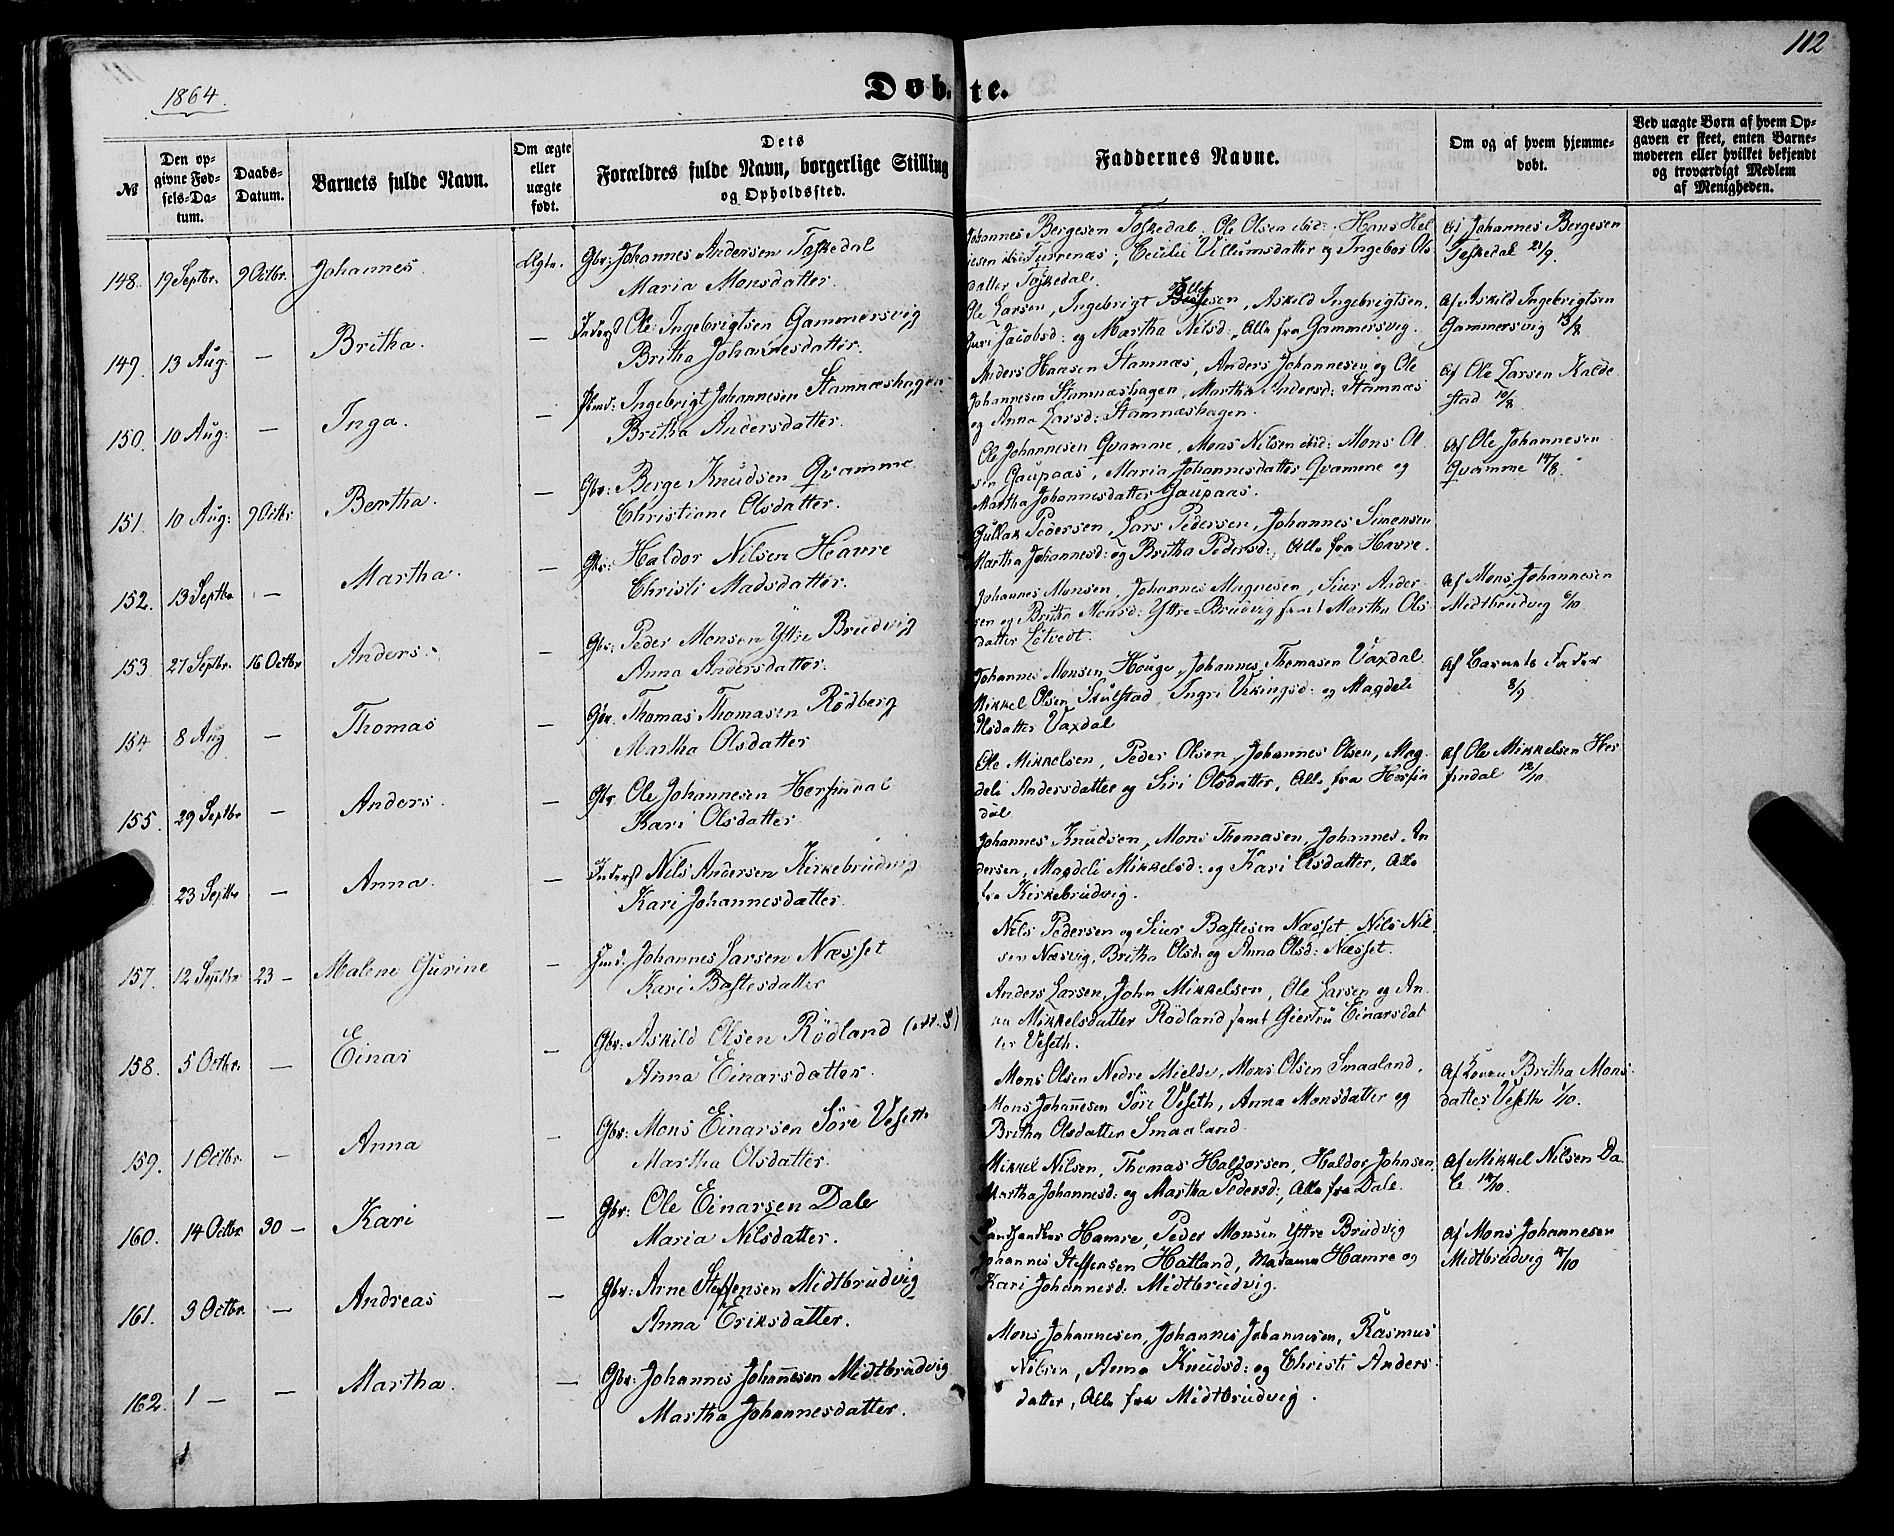 112
1864.
Døbte.
№
Den opgivne Fødsels-Datum.
Daabs-Datum.
Barnets fulde Navn.
Om ægte eller uægte født.
Dets Forældres fulde Navn, borgerlige Stilling og Opholdssted.
Faddernes Navne.
Om og af hvem hjemmedøbt.
Ved uægte Børn af hvem Opgaven er skeet, enten Barnemoderen eller hvilket bekjendt og troværdigt Medlem af Menigheden.
148. 19 Septbr. 9 Octbr. Johannes. Ægte. Gbr: Johannes Andersen Toskedal
Maria Monsdatter.
Johannes Bergesen Toskedal, Ole Olsen ibid: Hans Hel
Turrenæs; Cecilie Villumsdatter og Ingebor Ols
datter Toskedal.
Af Johannes Bergesen
Toskedal 21/9.
149. 13 Aug: — Britha. — Inderst Ole Ingebrigtsen Gammersvig
Britha Johannesdatter.
Ole Larsen, Ingebrigt Askild Ingebrigtsen,
Guri Jacobsd: og Martha Nilsd:, Alle fra Gammersvig.
Af Askild Ingebrigtsen
Gammersvig 13/8.
150. 10 Aug: — Inga. — Ingebrigt Johannesen Stamnæshagen
Britha Andersdatter.
Anders Haasen Stamnæs, Anders Johannesen og Ole
Johannesen Stamnæshagen, Martha Andersd: Stamnæs
og Anna Larsd: Stamnæshagen.
Af Ole Larsen Kalde
stad 10/8.
151. 10 Aug: 9 Octbr Bertha. — Gbr: Berge Knudsen Qvamme
Christiane Olsdatter.
Ole Johannesen Qvamme, Mons Nilsen ibid: Mons Ol
sen Gaupaas, Maria Johannesdatter Qvamme og
Martha Johannesdatter Gaupaas.
Af Ole Johannesen
Qvamme 14/8.
152. 13 Septbr — Martha. — Gbr: Haldor Nilsen Heavre
Christi Madsdatter.
Gullak Pedersen, Lars Pedersen, Johannes Simensen
Martha Johannesd: og Britha Pedersd:, Alle fra Havre.
153 27 Septbr. 16 Octbr Anders. — Gbr: Peder Monsen Yttre Brudvig
Anna Andersdatter.
Johannes Monsen, Johannes Magnesen, Siur Ander
sen og Britha Monsd: Yttre-Brudvig samt Martha Ols
datter Løtvedt.
Af Mons Johannesen
Midtbrudvig 6/10.
154 8 Aug — Thomas — Gbr. Thomas Thomasen Rödberg
Martha Olsdatter
Johannes Monsen Houge, Johannes Thomasen Vaxdal
Mikkel Olsen Skulstad Ingri Vikingsd: og Magdeli
Olsdatter Vaxdal
Af Barnets Fader
8/9
155. 29 Septbr — Anders. — Gbr. Ole Johannesen Herfindal
Kari Olsdatter
Ole Mikkelsen, Peder Olsen, Johannes Olsen, Mag
deli Andersdatter og Siri Olsdatter, Alle fra Herfin
dal
Af Ole Mikkelsen Her
findal 12/10.
23 Septbr — Anna. — Inderst Nils Andersen Kirkebrudvig
Kari Johannesdatter.
Johannes Knudsen, Mons Thomasen, Johannes An
dersen, Magdeli Mikkelsd: og Kari Olsdatter, Alle
fra Kirkebrudvig.
157. 12 Septbr 23 — Malene Gurine — Johannes Larsen Næsset
Kari Bastesdatter
Nils Pedersen og Siur Bastesen Næsset, Nils Nil
sen Næsvig, Britha Olsd: og Anna Olsd: Næsset.
158. 5 Octbr. — Einar — Gbr: Askild Olsen Rödland
Anna Einarsdatter.
Anders Larsen, John Mikkelsen, Ole Larsen og An
na Mikkelsdatter Rödland samt Giertru Einarsdat
ter Veseth.
159. 1 Octbr. — Anna — Gbr: Mons Einarsen Söre Veseth
Martha Olsdatter.
Mons Olsen Nedre Mielde, Mons Olsen Smaaland,
Mons Johannesen Söre Veseth, Anna Monsdatter og
Britha Olsdatter Smaaland.
Af Konen Britha Mons
datter Veseth 1/10.
160. 14 Octbr 30 — Kari — Gbr: Ole Einarsen Dale
Maria Nilsdatter.
Mikkel Nilsen, Thomas Haldorsen, Haldor Johnsen,
Martha Johannesd: og Martha Pedersd:, Alle fra Dale.
Af Mikkel Nilsen Da
le 14/10.
161. 3 Octbr. — Andreas — Gbr: Arne Steffensen Midtbrudvig
Anna Eriksdatter.
Landhandler Hamre, Peder Monsen Yttre Brudvig
Johannes Steffensen Hatland, Madame Hamre og
Kari Johannesd: Midtbrudvig.
Af Mons Johannesen
Midtbrudvig 4/10
162. 1 — — Martha. — Gbr: Johannes Johannesen Midtbrudvig
Martha Johannesdatter.
Mons Johannesen, Johannes Johannesen, Rasmus
Nilsen, Anna Knudsd: og Christi Anders
datter, Alle fra Midtbrudvig.